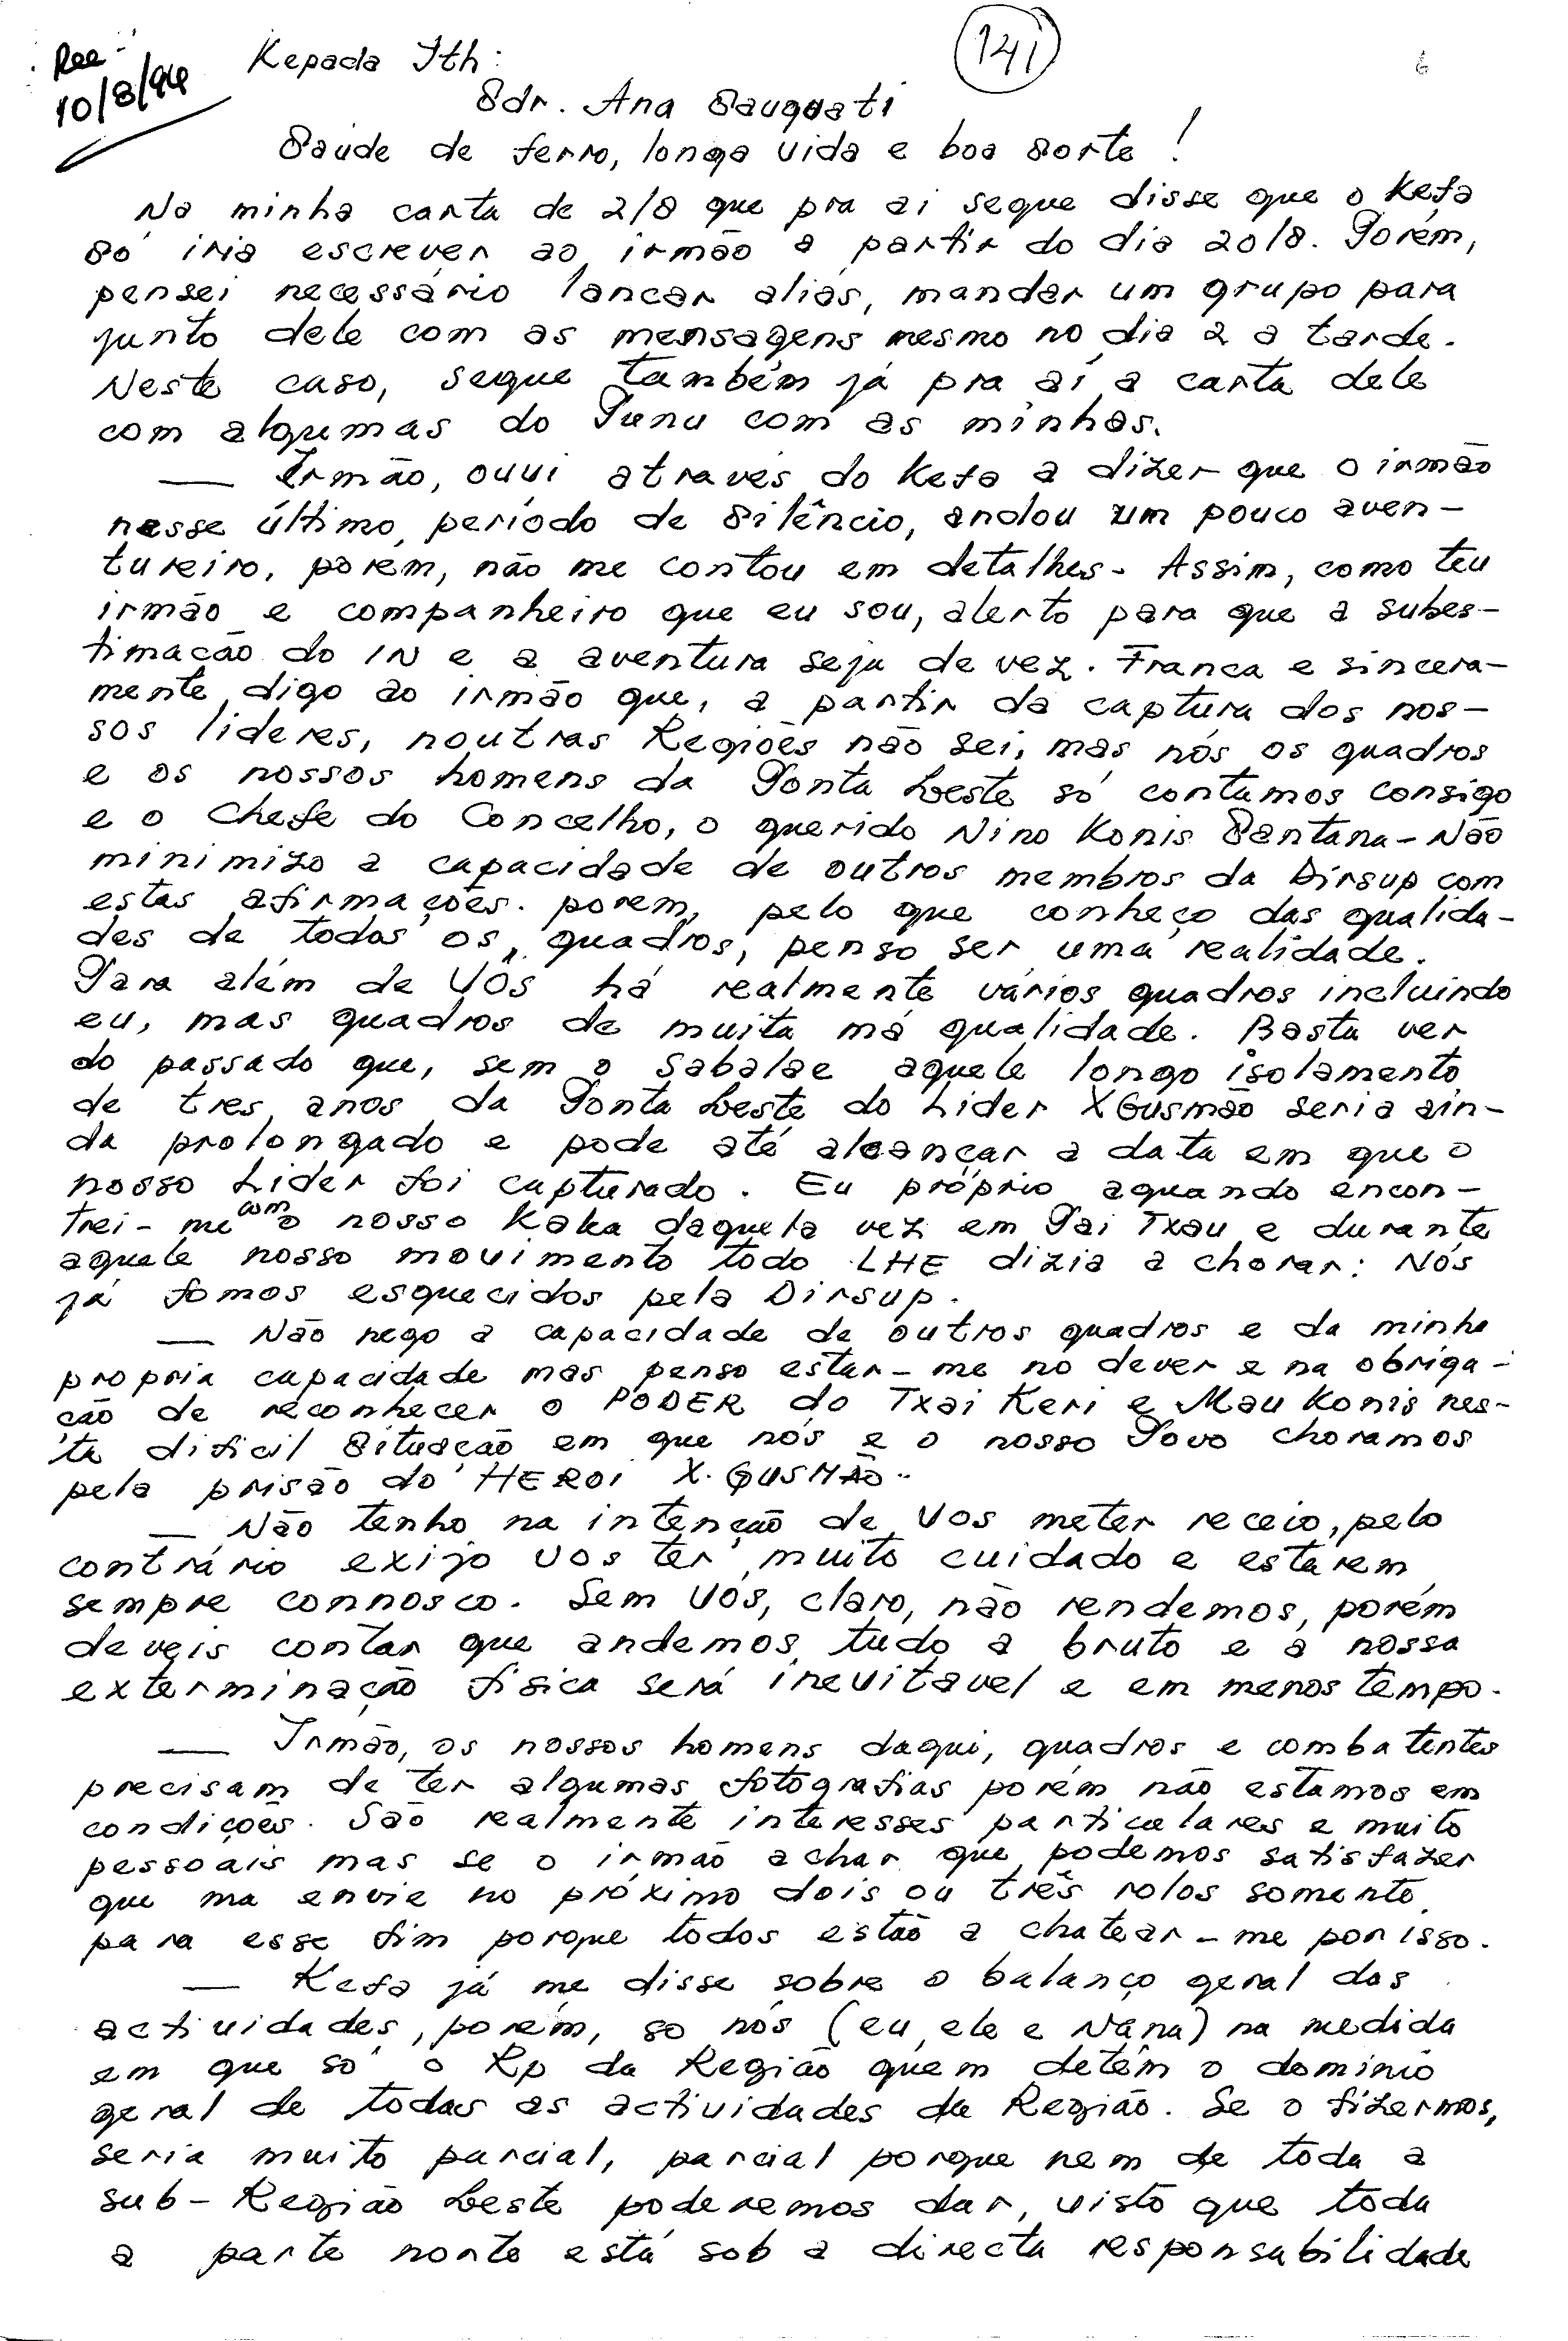 Rec-
10/8/94
Kepada Yth:
141
Sdr. Ana Sauguati
Saúde de ferro, longa vida e boa sorte!
Na minha carta de 2/8 que pra ai segue disse que o Kefa
só iria escrever ao irmão a partir do dia 20/8. Porém,
pensei necessário lancar aliás, mandar um grupo para
junto dele com as mensagens mesmo no dia 2 a tarde.
Neste caso, segue também já pra aí a carta dele
com algumas do Punu com as minhas.
— Irmão, ouvi através do Kefa a dizer que o irmão
nesse último período de silêncio, andou um pouco aven-
tureiro, porém, não me contou em detalhes. Assim, como teu
irmão e companheiro que eu sou, alerto para que a subes-
timacão do IN e a aventura seja de vez. Franca e sincera-
mente digo ao irmão que, a partir da captura dos nos-
sos lideres, noutras Regiões não sei, mas nós os quadros
e os nossos homens da Ponta Leste só contamos consigo
e o Chefe do Concelho, o querido Nino Konis Santana- Não
minimizo a capacidade de outros membros da Dirsup com
estas afirmações. porem, pelo que conheço das qualida-
des de todos os quadros, penso ser uma realidade.
Para além de VÓS há realmente vários quadros incluindo
eu, mas quadros de muita má qualidade. Basta ver
do passado que, sem o Sabalae aquele longo isolamento
de tres anos da Ponta Leste do Lider XGusmão seria ain-
da prolongado e pode até alcançar a data em que o
nosso Lider foi capturado. Eu próprio aquando encon-
trei-me com o nosso Kaka daquela vez em Pai Txau e durante
aquele nosso movimento todo LHE dizia a chorar: Nós
já fomos esquecidos pela Dirsup.
— Não nego a capacidade de outros quadros e da minha
propria capacidade mas penso estar-me no dever e na obriga-
cão de reconhecer o PODER do Txai Keri e Mau Konis nes-
ta dificil situacão em que nós e o nosso Povo choramos
pela prisão do HEROI X. GUSMÃO..
— Não tenho na intenção de vos meter receio, pelo
contrário exijo vos ter muito cuidado e estarem
sempre connosco. Sem VÓS, claro, não rendemos, porém
deveis contar que andemos tudo a bruto e a nossa
exterminação fisica será inevitavel e em menos tempo.
— Irmão, os nossos homens daqui, quadros e combatentes
precisam de ter algumas fotografias porém não estamos em
condições. São realmente interesses particulares e muito
pessoais mas se o irmão achar que podemos satisfazer
que ma envie no próximo dois ou três rolos somente
para esse fim porque todos estão a chatear-me por isso.
— Kefa já me disse sobre o balanço geral das
actividades, porém, so nós (eu, ele e Nana) na medida
em que só o Rp da Região quem detêm o dominio
geral de todas as actividades da Região. Se o fizermos,
seria muito parcial, parcial porque nem de toda a
sub-Região Leste poderemos dar, visto que toda
a parte norte está sob a directa responsabilidade